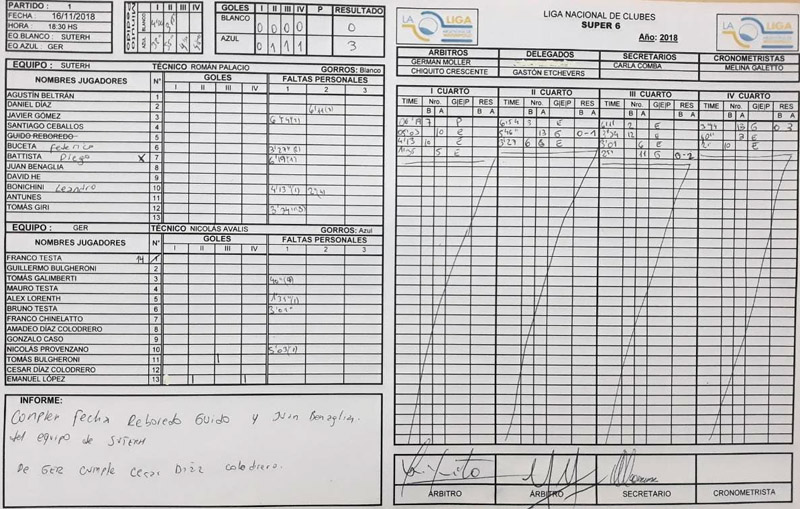 PARTIDO : 1
FECHA : 16/11/2018
HORA : 18:30 HS
EQ.BLANCO : SUTERH
EQ AZUL : GER
I II III IV
BLANCO
AZUL
GOLES I II III IV P RESULTADO
BLANCO 0 0 0 0 0
AZUL 0 1 1 1 3
EQUIPO : SUTERH TÉCNICO ROMÁN PALACIO GORROS: Blanco
NOMBRES JUGADORES N° GOLES FALTAS PERSONALES
I II III IV 1 2 3
AGUSTÍN BELTRÁN 1
DANIEL DÍAZ 2
JAVIER GÓMEZ 3
SANTIAGO CEBALLOS 4
GUIDO REBOREDO 5
BUCETA Federico 6
BATTISTA Diego X 7
JUAN BENAGLIA 8
DAVID HE 9
BONICHINI Leandro 10
ANTUNES 11
TOMÁS GIRI 12
13
EQUIPO : GER TÉCNICO NICOLÁS AVALIS GORROS: Azul
NOMBRES JUGADORES N° GOLES FALTAS PERSONALES
I II III IV 1 2 3
FRANCO TESTA 14 1
GUILLERMO BULGHERONI 2
TOMÁS GALIMBERTI 3
MAURO TESTA 4
ALEX LORENTH 5
BRUNO TESTA 6
FRANCO CHINELATTO 7
AMADEO DÍAZ COLODRERO 8
GONZALO CASO 9
NICOLÁS PROVENZANO 10
TOMÁS BULGHERONI 11
CESAR DÍAZ COLODRERO 12
EMANUEL LÓPEZ 13
INFORME:
Cumplen fecha Reboredo Guido y Juan Benaglia
del equipo de SUTERH
De GER cumple Cesar Diaz colodrero.
LA LIGA
LIGA NACIONAL DE CLUBES
SUPER 6
Año: 2018
LA LIGA
ÁRBITROS DELEGADOS SECRETARIOS CRONOMETRISTAS
GERMAN MOLLER CARLA COMBA MELINA GALETTO
CHIQUITO CRESCENTE GASTÓN ETCHEVERS
I CUARTO II CUARTO III CUARTO IV CUARTO
TIME Nro. G|E|P RES TIME Nro. G|E|P RES TIME Nro. G|E|P RES TIME Nro. G|E|P RES
B A B A B A B A
7 P 6:54 3 E 2 E 13 G 0-3
05:03 10 E 13 G 0-1 12 E 3 E
4'13 10 E 5'29 6 E 3'01 6 E 10 E
5 E 11 G 0-2
ÁRBITRO ÁRBITRO SECRETARIO CRONOMETRISTA